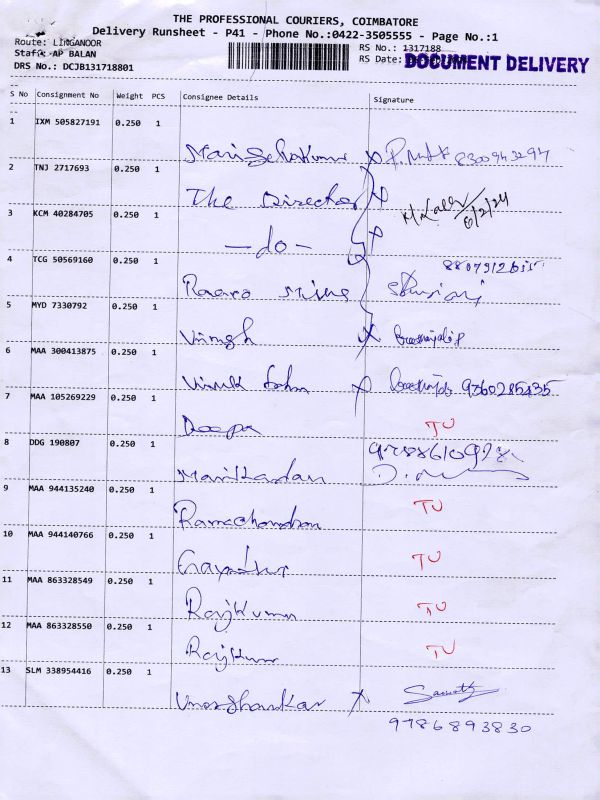 THE PROFESSIONAL COURIERS, COIMBATORE
Delivery Runsheet - P41 - Phone No.:0422-3505555 - Page No.:1
Route: LINGANOOR
Staff: AP BALAN
DRS No.: DCJB131718801
RS No.: 1317188
RS Date:
DOCUMENT DELIVERY
S No Consignment No Weight PCS Consignee Details Signature
1 IXM 505827191 0.250 1
8300943294
2 TNJ 2717693 0.250 1 The Director
6/2/24
3 KCM 40284705 0.250 1 - do -
4 TCG 50569160 0.250 1
5 MYD 7330792 0.250 1
6 MAA 300413875 0.250 1
9360285435
7 MAA 105269229 0.250 1 Deepa TU
8 DDG 190807 0.250 1 Manikandan
9 MAA 944135240 0.250 1 Ramachandran TU
10 MAA 944140766 0.250 1 Gayathri TU
11 MAA 863328549 0.250 1 Rajkumar TU
12 MAA 863328550 0.250 1 Rajkumar TU
13 SLM 338954416 0.250 1
9786893830